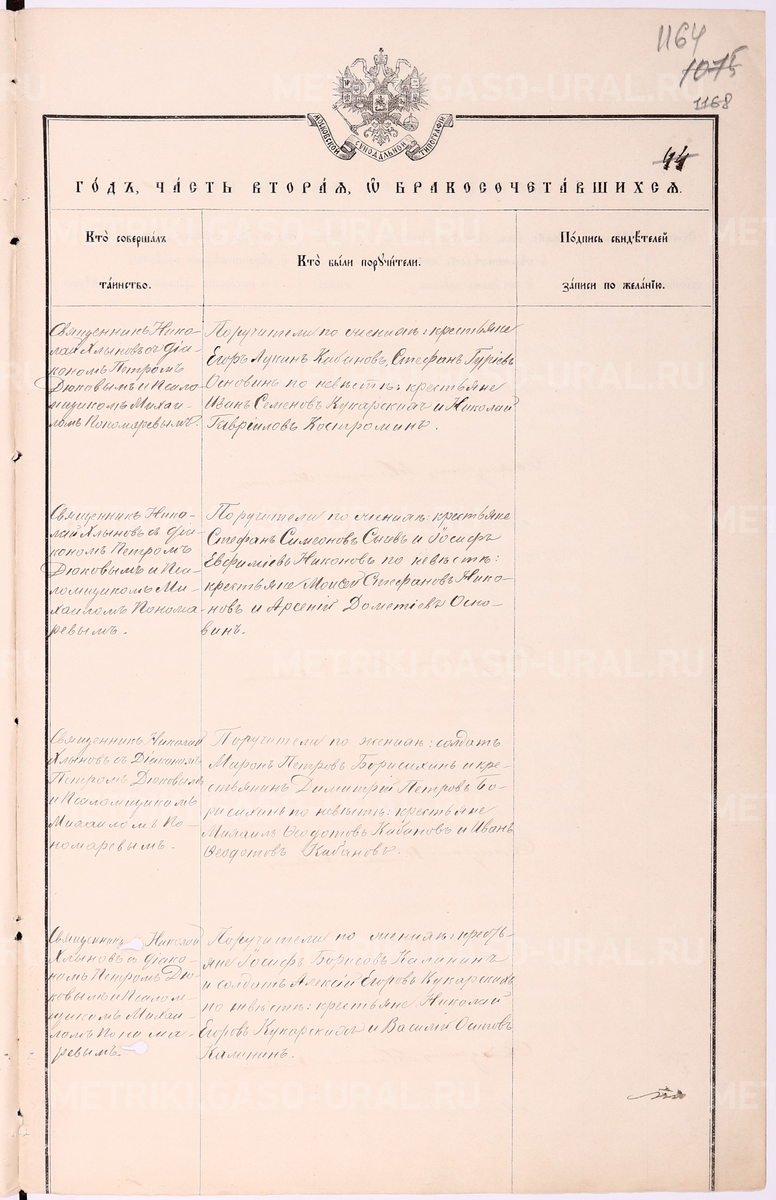 1164
1075
1168
МОСКОВСКОЙ СУНОДАЛЬНОЙ ТИПОГРАФІИ
44
ГО́ДЪ, ЧА́СТЬ ВТОРА́Ѧ, Ѽ БРАКОСОЧЕТА́ВШИХСѦ.
Кто̀ соверша́лъ
та́инство.
Кто̀ бы́ли порꙋчи́тели.
По́дпись свидѣ́телей
за́писи по жела́нїю.
Священникъ Нико-
лай Хлыновъ съ діа-
кономъ Петромъ
Дюковымъ и Псало-
мщикомъ Михаи-
ломъ Пономаревымъ.
Поручители по женихѣ: крестьяне
Егоръ Лукинъ Кабановъ, Стефанъ Гурієвъ
Основинъ по невѣстѣ: крестьяне
Иванъ Семеновъ Кукарскихъ и Николай
Гавріиловъ Костроминъ.
Священникъ Нико-
лай Хлыновъ съ діа-
кономъ Петромъ
Дюковымъ и Пса-
ломщикомъ Ми-
хаиломъ Понома-
ревымъ.
Поручители по женихѣ: крестьяне
Стефанъ Симеоновъ и Іосифъ
Евфиміевъ Никоновъ по невѣстѣ:
крестьяне Моисей Стефановъ Нико-
новъ и Арсеній Дометіевъ Осно-
винъ.
Священникъ Николай
Хлыновъ съ Діакономъ
Петромъ Дюковымъ
и Псаломщикомъ
Михаиломъ По-
номаревымъ.
Поручители по женихѣ: солдатъ
Миронъ Петровъ Борисихинъ и кре-
стьянинъ Димитрій Петровъ Бо-
рисихинъ по невѣстѣ: крестьяне
Михаилъ Ѳеодотовъ Кабановъ и Иванъ
Ѳеодотовъ Кабановъ.
Священникъ Николай
Хлыновъ съ діако-
номъ Петромъ Дю-
ковымъ и Псалом-
щикомъ Михаи-
ломъ Понома-
ревымъ.
Поручители по женихѣ: кресть-
яне Іосифъ Борисовъ Калининъ
и солдатъ Алексій Егоровъ Кукарскихъ
по невѣстѣ: крестьяне Николай
Егоровъ Кукарскихъ и Василій Осиповъ
Калининъ.
METRIKI.GASO-URAL.RU
METRIKI.GASO-URAL.RU
METRIKI.GASO-URAL.RU
METRIKI.GASO-URAL.RU